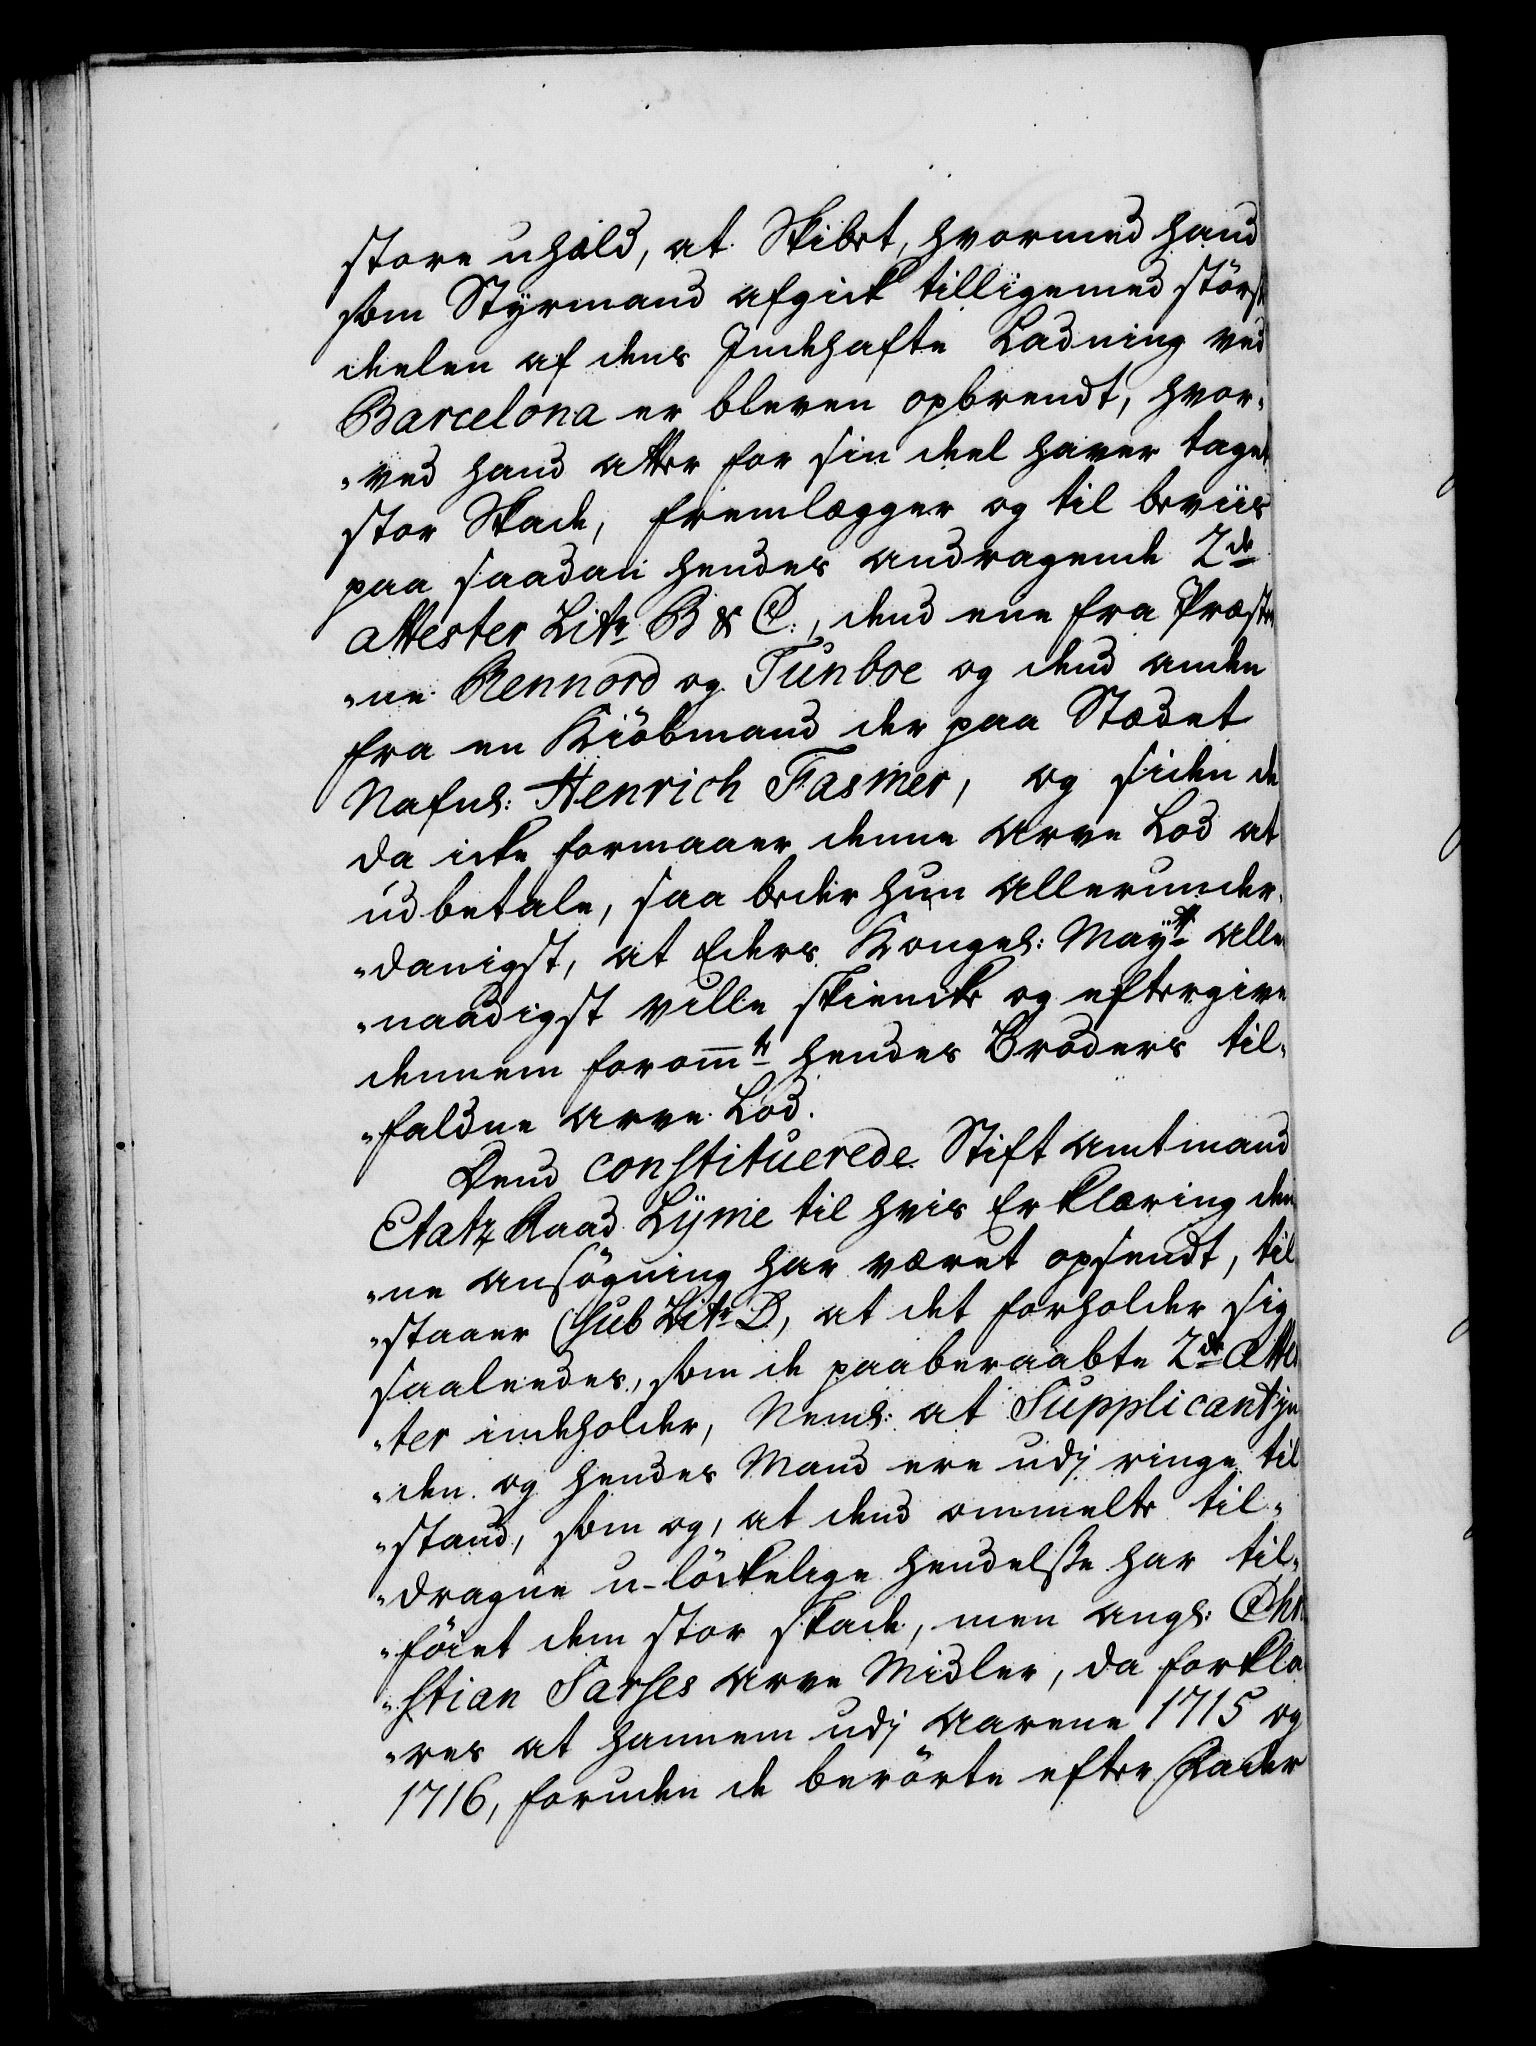 store uhæld, at Skibet, hvormed hand
som Styrmand afgick tilligemed störst
deelen af dens Indehafte Ladning ved
Barcelona er bleven opbrendt, hvor¬
"ved hand atter for sin deel haver taget
stor Skade, fremlægger og til beviis
paa saadan hendes andragende 2de
attester Litr B & C., dend ene fra Præste
"ne Rennord og Tunboe og dend anden
fra en Kiöbmand der paa Stædet
Nafnl: Henrich Fasmer, og siden de
da icke formaaer denne Arve Lod at
udbetale, saa beder hun allerunder¬
"danigst, at Eders Kongel: Mayts Aller
"naadigst ville skiencke og eftergive
dennem foromte hendes Broders til¬
"faldne Arve Lod.
Dend constituerede Stift Amtmand
Etatz Raad Lyme til hvis Erklæring den
"ne ansögning har været opsendt, til
"staaer (sub Litr D, at det forholder sig
saaleedes, som de paaberaabte 2de Attes
"ter indeholder, Neml: at Supplicantin
"den og hendes Mand ere udj ringe til
"stand, som og, at dend ommelte til¬
"dragne u-löckelige hendelsse har til¬
"föiet dem stor skade, men angl: Chri
"stian Sarses Arve Midler, da forkla
"res at hannem udj Aarene 1715 og
1716, foruden de berörte efter Fader